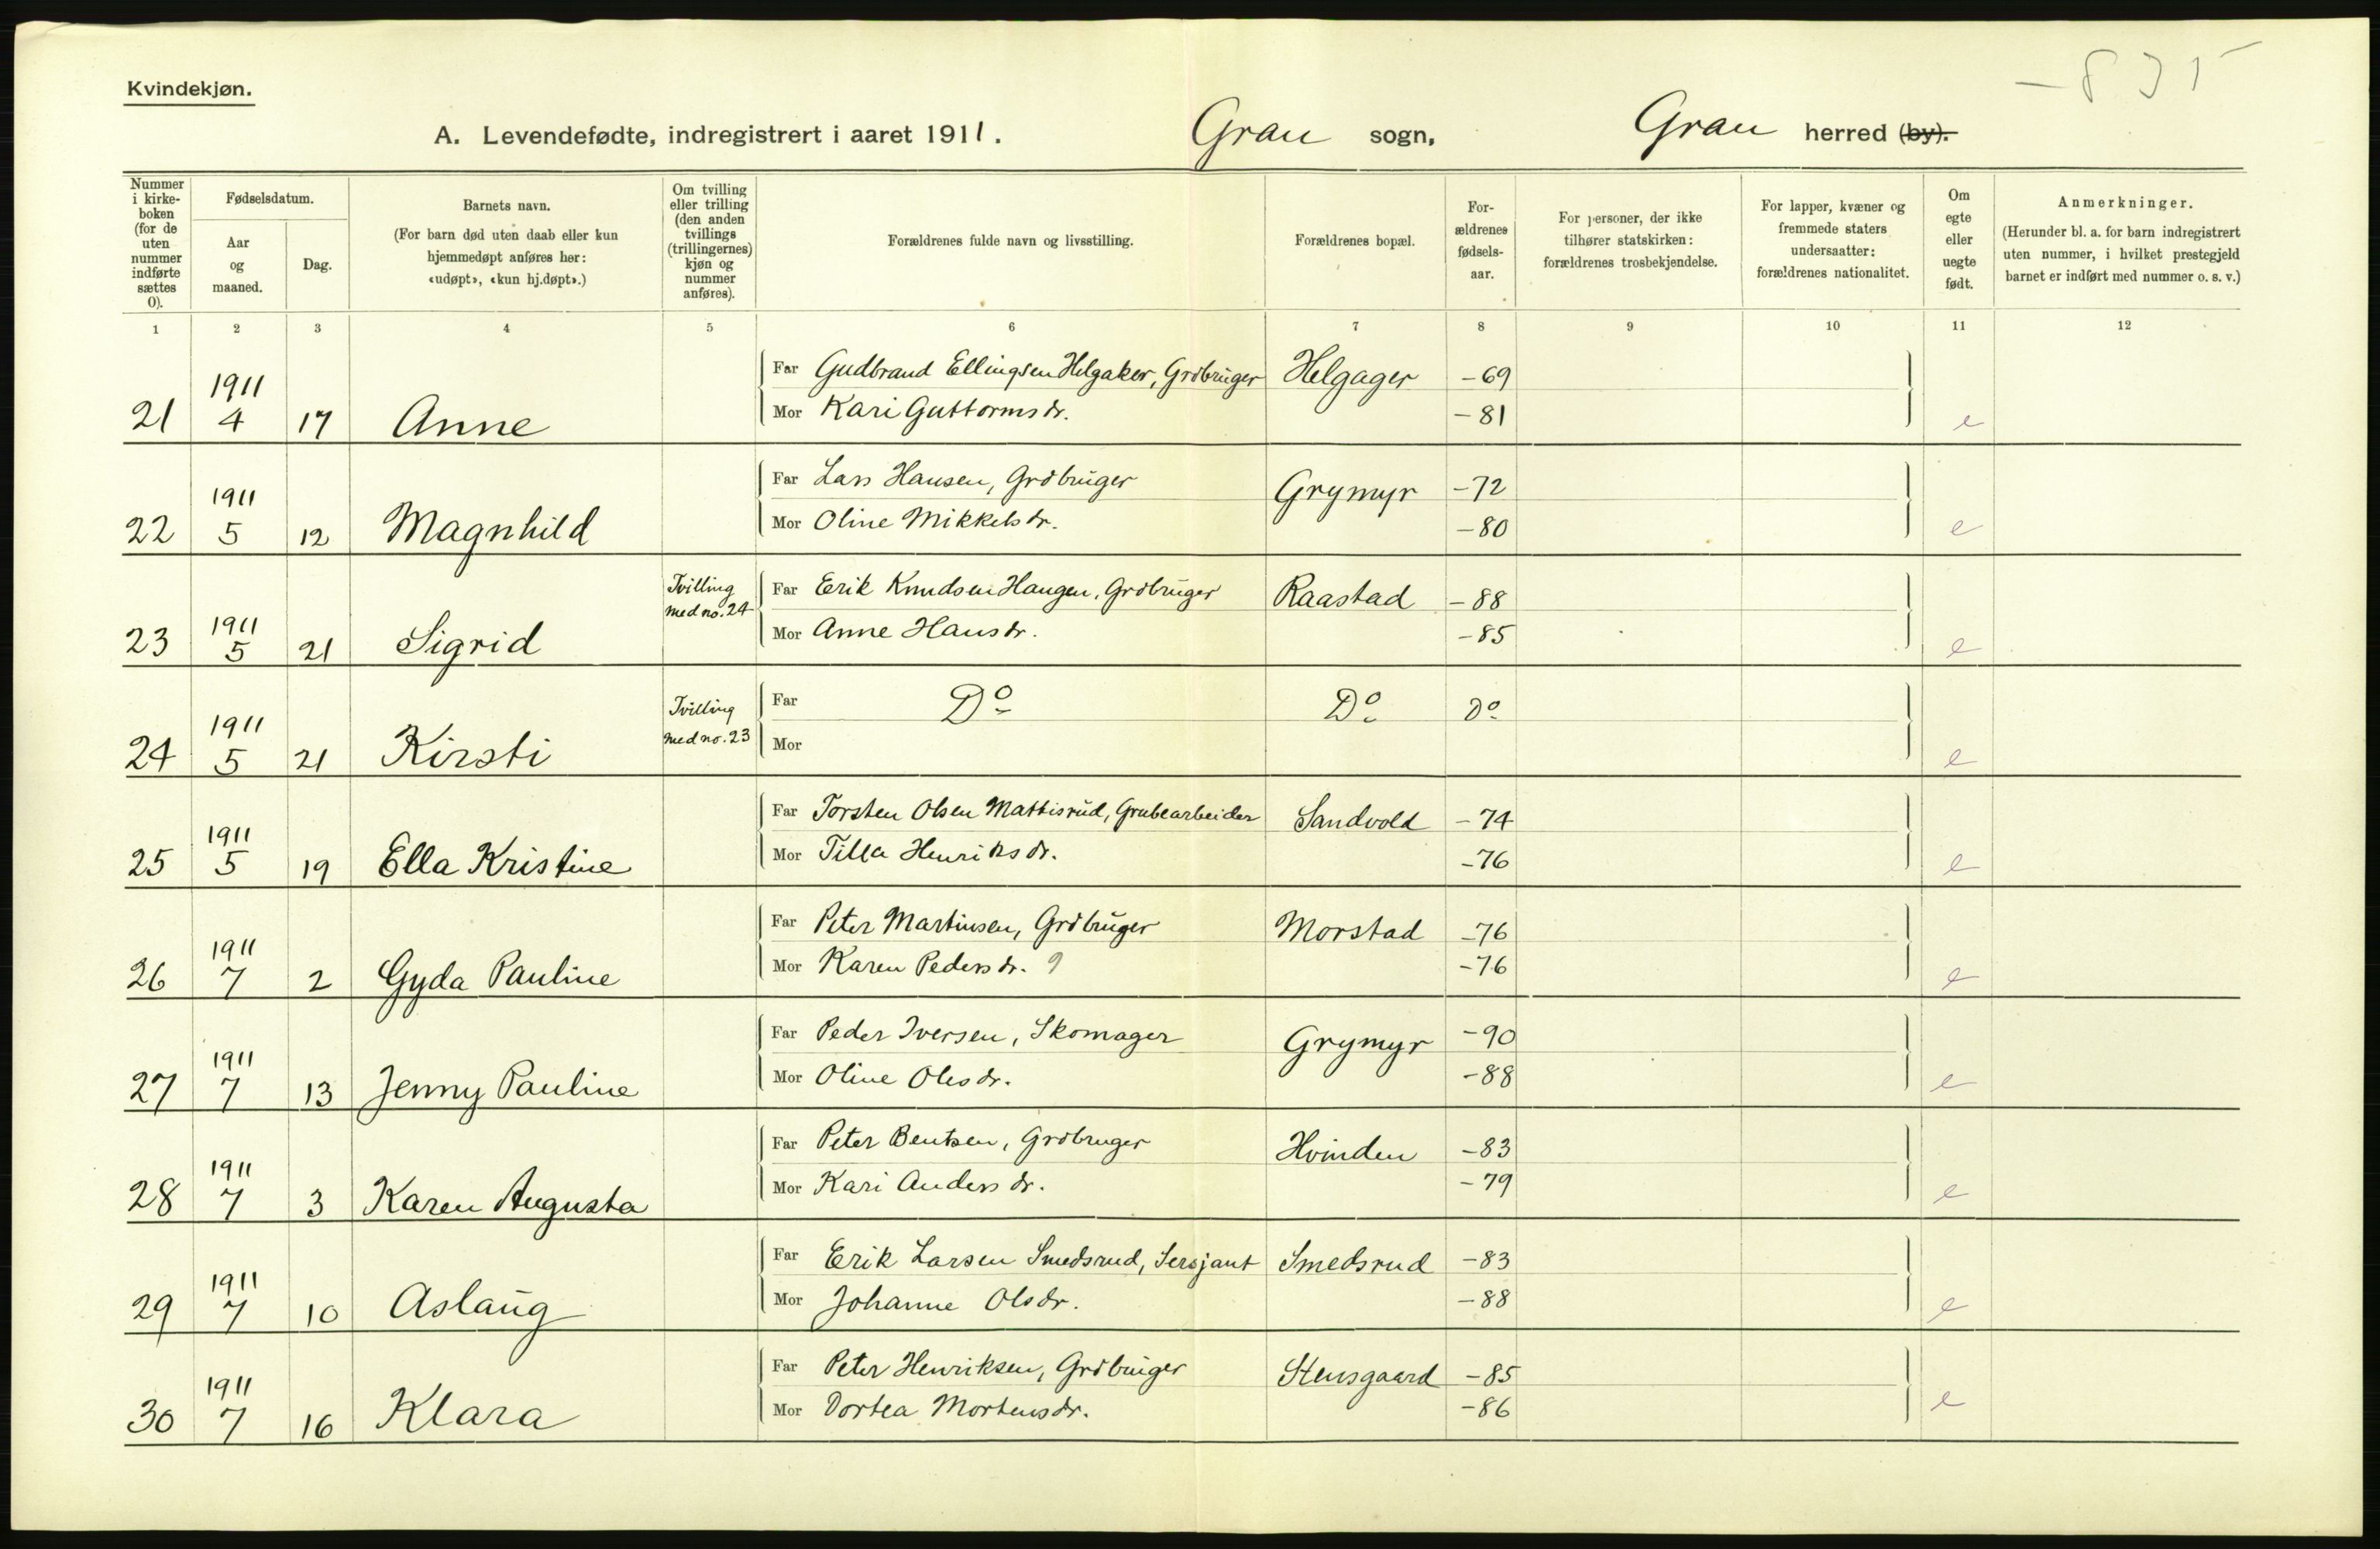 - 835
Kvindekjøn.
A. Levendefødte, indregistrert i aaret 1911. Gran sogn, Gran herred (by).
Nummer i kirke-boken (for de uten nummer indførte sættes 0).
Fødselsdatum.
Aar og maaned.
Dag.
Barnets navn.
(For barn død uten daab eller kun hjemmedøpt anføres her: «udøpt», «kun hj.døpt».)
Om tvilling eller trilling (den anden tvillings (trillingernes) kjøn og nummer anføres).
Forældrenes fulde navn og livsstilling.
Forældrenes bopæl.
For-ældrenes fødsels-aar.
For personer, der ikke tilhører statskirken: forældrenes trosbekjendelse.
For lapper, kvæner og fremmede staters undersaatter: forældrenes nationalitet.
Om egte eller uegte født.
Anmerkninger.
(Herunder bl. a. for barn indregistrert uten nummer, i hvilket prestegjeld barnet er indført med nummer o. s. v.)
1 2 3 4 5 6 7 8 9 10 11 12
1911 Far Gudbrand Ellingsen Helgaker, Grdbruger Helgager -69
21 4 17 Anne Mor Kari Guttormsdr. -81 e
1911 Far Lars Hansen, Grdbruger Grymyr -72
22 5 12 Magnhild Mor Oline Mikkelsdr. -80 e
Tvilling med no. 24 Far Erik Knudsen Haugen, Grdbruger Raastad -88
23 1911 5 21 Sigrid Mor Anne Hansdr. -85 e
1911 Tvilling med no. 23 Far Do Do Do
24 5 21 Kirsti Mor e
1911 Far Torsten Olsen Mattisrud, Grubearbeider Sandvold -74
25 5 19 Ella Kristine Mor Tilla Henriksdr. -76 e
1911 Far Peter Martinsen, Grdbruger Morstad -76
26 7 2 Gyda Pauline Mor Karen Pedersdr. 9 -76 e
1911 Far Peder Iversen, Skomager Grymyr -90
27 7 13 Jenny Pauline Mor Oline Olesdr. -88 e
1911 Far Peter Bentsen, Grdbruger Hvinden -83
28 7 3 Karen Augusta Mor Kari Andersdr. -79 e
1911 Far Erik Larsen Smedsrud, Sersjant Smedsrud -83
29 7 10 Aslaug Mor Johanne Olsdr. -88 e
1911 Far Peter Henriksen, Grdbruger Stensgaard -85
30 7 16 Klara Mor Dortea Mortensdr. -86 e